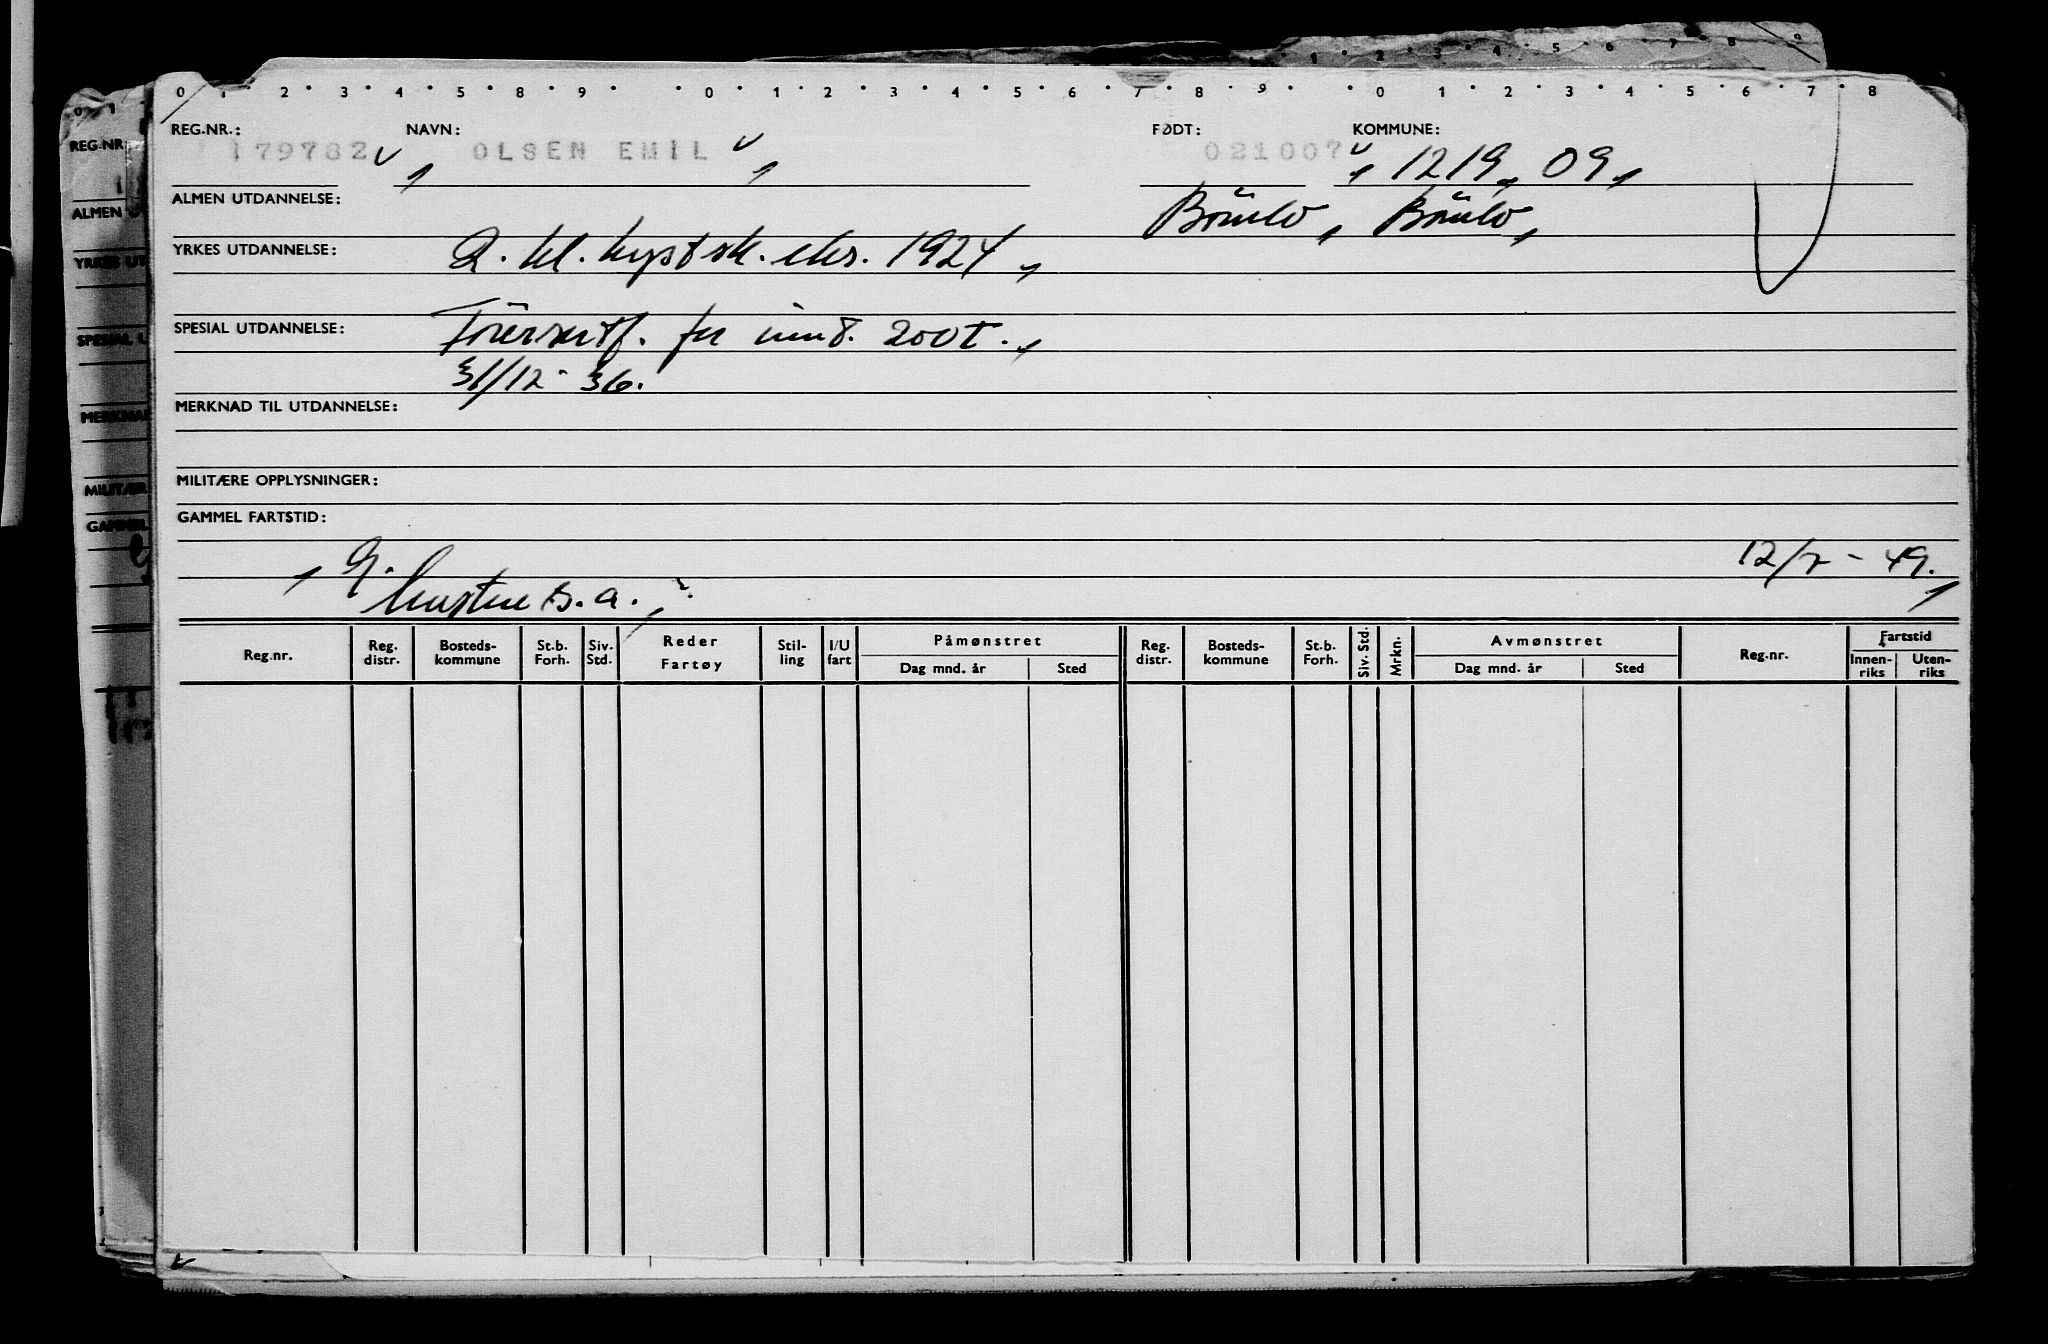 0 1 2 3 4 5 6 7 8 9
0 1 2 3 4 5 6 7 8 9 0 1 2 3 4 5 6 7 8 9 0 1 2 3 4 5 6 7 8
REG.NR.: NAVN: FØDT: KOMMUNE:
179782 OLSEN EMIL 021007 1219, 09,
ALMEN UTDANNELSE: Bömlo, Bömlo,
YRKES UTDANNELSE: 2. kl. kystsk. eks. 1924,
SPESIAL UTDANNELSE: Förersertf. for innt. 200t.,
31/12-36.
MERKNAD TIL UTDANNELSE:
MILITÆRE OPPLYSNINGER:
GAMMEL FARTSTID:
12/7-49.
s.a.,
Reg.nr. Reg. distr. Bosteds-kommune St.b. Forh. Siv. Std. Reder Fartøy Stil-ling I/U fart Påmønstret Dag mnd. år Sted Reg. distr. Bosteds-kommune St.b. Forh. Siv. Std. Mrkn. Avmønstret Dag mnd. år Sted Reg.nr. Fartstid Innen-riks Uten-riks